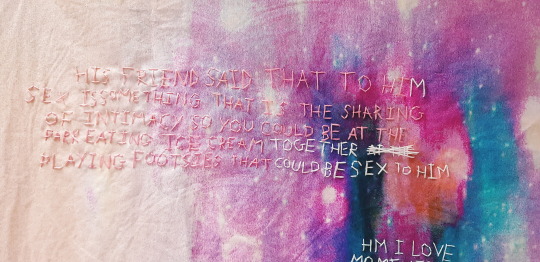 HIS FRIEND SAID THAT TO HIM
SEX IS SOMETHING THAT IS THE SHARING
OF INTIMACY SO YOU COULD BE AT THE
PARK EATING ICE CREAM TOGETHER
PLAYING FOOTSIES THAT COULD BE SEX TO HIM
HM I LOVE